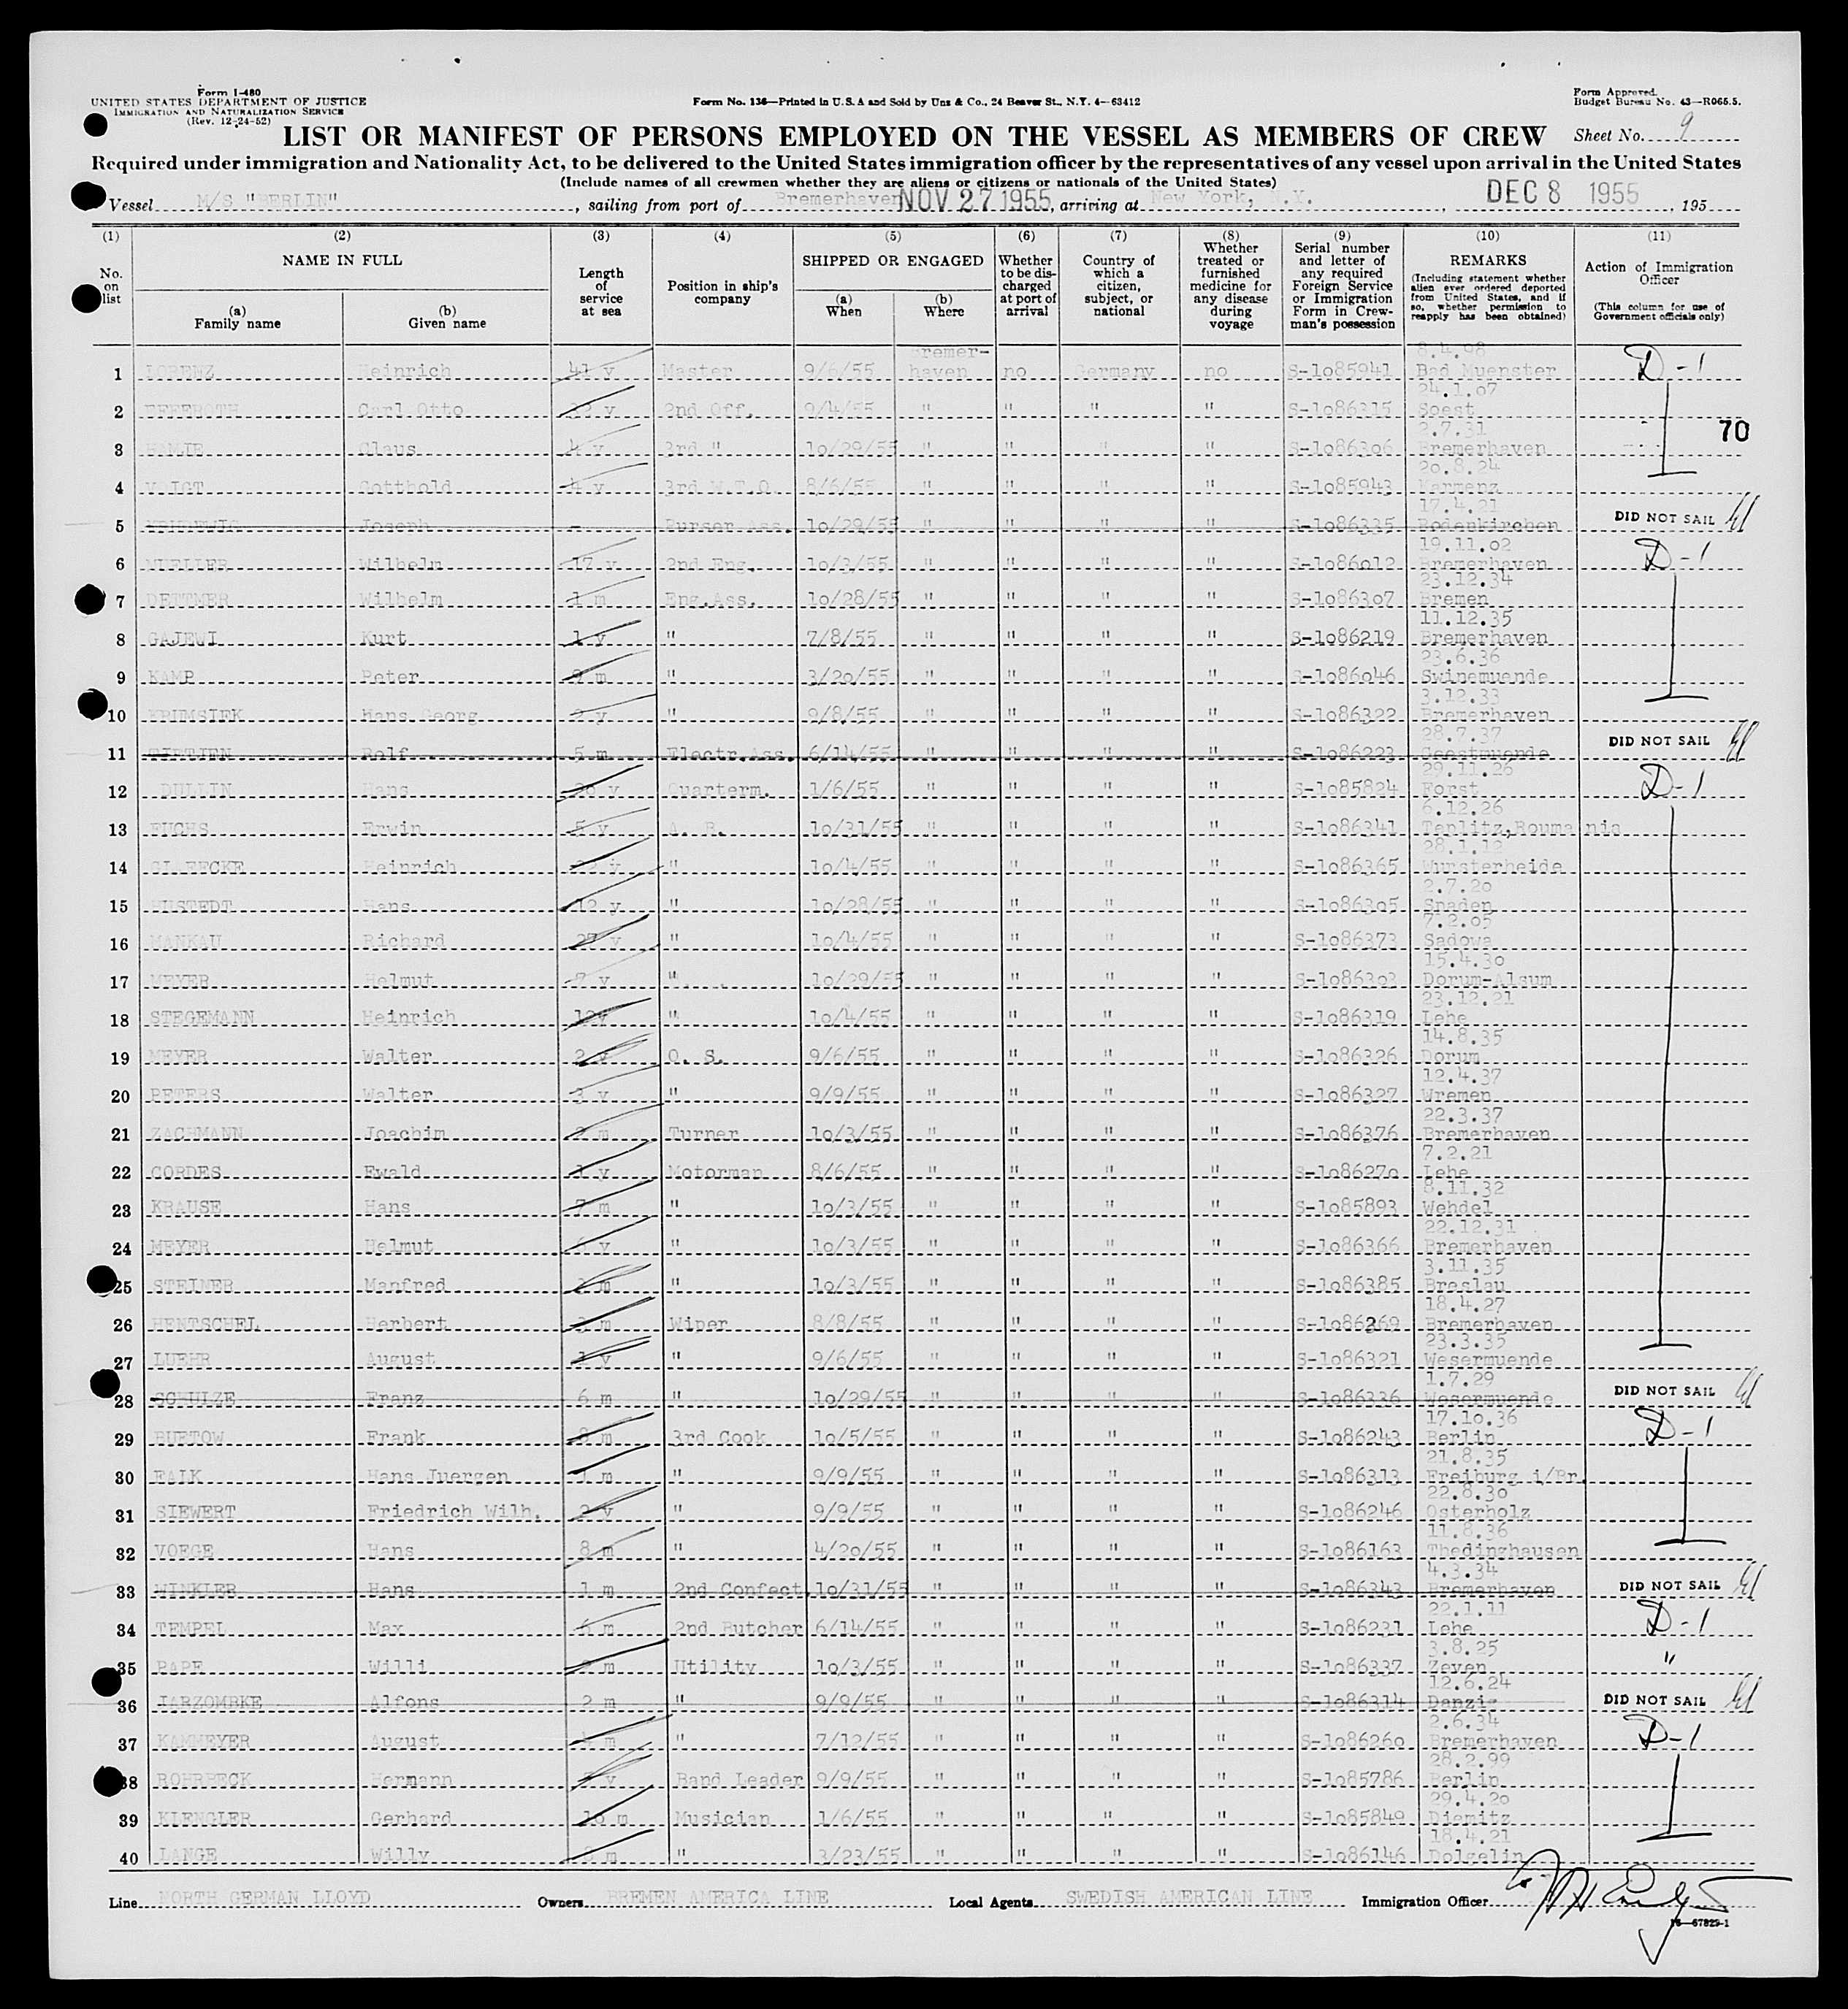 Form I-480
UNITED STATES DEPARTMENT OF JUSTICE
IMMIGRATION AND NATURALIZATION SERVICE
(Rev. 12-24-52)
Form No. 136—Printed in U.S.A and Sold by Unz & Co., 24 Beaver St., N.Y. 4—63412
Form Approved.
Budget Bureau No. 43—R065.5.
LIST OR MANIFEST OF PERSONS EMPLOYED ON THE VESSEL AS MEMBERS OF CREW
Sheet No. 9
Required under immigration and Nationality Act, to be delivered to the United States immigration officer by the representatives of any vessel upon arrival in the United States
(Include names of all crewmen whether they are aliens or citizens or nationals of the United States)
Vessel M/S "BERLIN", sailing from port of Bremerhaven NOV 27 1955, arriving at New York, N.Y., DEC 8 1955, 195
(1) (2) (3) (4) (5) (6) (7) (8) (9) (10) (11)
No. on list
NAME IN FULL
(a) Family name
(b) Given name
Length of service at sea
Position in ship's company
SHIPPED OR ENGAGED
(a) When
(b) Where
Whether to be discharged at port of arrival
Country of which a citizen, subject, or national
Whether treated or furnished medicine for any disease during voyage
Serial number and letter of any required Foreign Service or Immigration Form in Crewman's possession
REMARKS
(Including statement whether alien ever ordered deported from United States, and if so, whether permission to reapply has been obtained)
Action of Immigration Officer
(This column for use of Government officials only)
1 LORENZ Heinrich 41 y Master 9/6/55 Bremerhaven no Germany no S-1085941 8.4.98 Bad Muenster D-1
2 Carl Otto y 2nd Off. 9/4/55 " " " " S-1086315 24.1.07 Soest
70
3 HAMJE Claus 4 y 3rd " 10/29/55 " " " " S-1086306 2.7.31 Bremerhaven
4 VOIGT Gotthold 4 y 3rd W.T.O. 8/6/55 " " " " S-1085943 20.8.24 Kamenz
5 Joseph - Purser Ass. 10/29/55 " " " " S-1086335 17.4.21 Rodenkirchen DID NOT SAIL
6 MUELLER Wilhelm 17 y 2nd Eng. 10/3/55 " " " " S-1086012 19.11.02 Bremerhaven D-1
7 DETTMER Wilhelm 1 m Eng.Ass. 10/28/55 " " " " S-1086307 23.12.34 Bremen
8 GAJEWI Kurt 1 y " 7/8/55 " " " " S-1086219 11.12.35 Bremerhaven
9 KAMP Peter 9 m " 3/20/55 " " " " S-1086046 23.6.36 Swinemuende
10 KRUMSIEK Hans Georg 2 y " 9/8/55 " " " " S-1086322 3.12.33 Bremerhaven
11 TIETJEN Rolf 5 m Electr.Ass. 6/14/55 " " " " S-1086223 28.7.37 Geestmuende DID NOT SAIL
12 DULLIN Hans y Quarterm. 1/6/55 " " " " S-1085824 29.11.26 Forst D-1
13 FUCHS Erwin 5 y A. B. 10/31/55 " " " " S-1086341 6.12.26 Teplitz,Roumania
14 Heinrich y " 10/4/55 " " " " S-1086365 28.1.12 Wursterheide
15 HUSTEDT Hans 12 y " 10/28/55 " " " " S-1086305 2.7.20 Spaden
16 MANKAU Richard 27 y " 10/4/55 " " " " S-1086373 7.2.05 Sadowa
17 MEYER Helmut 7 y " 10/29/55 " " " " S-1086303 15.4.30 Dorum-Alsum
18 STEGEMANN Heinrich 12y " 10/4/55 " " " " S-1086319 23.12.21 Lehe
19 MEYER Walter 2 y O. S. 9/6/55 " " " " S-1086326 14.8.35 Dorum
20 PETERS Walter 3 y " 9/9/55 " " " " S-1086327 12.4.37 Wremen
21 ZACHMANN Joachim 2 m Turner 10/3/55 " " " " S-1086376 22.3.37 Bremerhaven
22 CORDES Ewald 1 y Motorman 8/6/55 " " " " S-1086270 7.2.21 Lehe
23 KRAUSE Hans 7 m " 10/3/55 " " " " S-1085893 8.11.32 Wehdel
24 MEYER Helmut 6 y " 10/3/55 " " " " S-1086366 22.12.31 Bremerhaven
25 STEINER Manfred 2 m " 10/3/55 " " " " S-1086385 3.11.35 Breslau
26 HENTSCHEL Herbert 3 m Wiper 8/8/55 " " " " S-1086269 18.4.27 Bremerhaven
27 LUEHR August 1 y " 9/6/55 " " " " S-1086321 23.3.35 Wesermuende
28 SCHULZE Franz 6 m " 10/29/55 " " " " S-1086336 1.7.29 Wesermuende DID NOT SAIL
29 BUETOW Frank 8 m 3rd Cook 10/5/55 " " " " S-1086243 17.10.36 Berlin D-1
30 FALK Hans Juergen 1 m " 9/9/55 " " " " S-1086313 21.8.35 Freiburg i/Br.
31 SIEWERT Friedrich Wilh. 2 y " 9/9/55 " " " " S-1086246 22.8.30 Osterholz
32 VOEGE Hans 8 m " 4/20/55 " " " " S-1086163 11.8.36 Thedinghausen
33 WINKLER Hans 1 m 2nd Confect. 10/31/55 " " " " S-1086343 4.3.34 Bremerhaven DID NOT SAIL
34 TEMPEL Max 6 m 2nd Butcher 6/14/55 " " " " S-1086231 22.1.11 Lehe D-1
35 PAPE Willi 2 m Utility 10/3/55 " " " " S-1086337 3.8.25 Zeven "
36 JARZOMBKE Alfons 2 m " 9/9/55 " " " " S-1086314 12.6.24 Danzig DID NOT SAIL
37 KAMMEYER August 4 m " 7/12/55 " " " " S-1086260 2.6.34 Bremerhaven D-1
38 ROHRBECK Hermann 7 y Band Leader 9/9/55 " " " " S-1085786 28.2.99 Berlin
39 KLENGLER Gerhard 10 m Musician 1/6/55 " " " " S-1085849 29.4.20 Diemitz
40 LANGE Willy m " 3/23/55 " " " " S-1086146 18.4.21 Dolgelin
Line NORTH GERMAN LLOYD Owners BREMEN AMERICA LINE Local Agents SWEDISH AMERICAN LINE Immigration Officer
16—67829-1